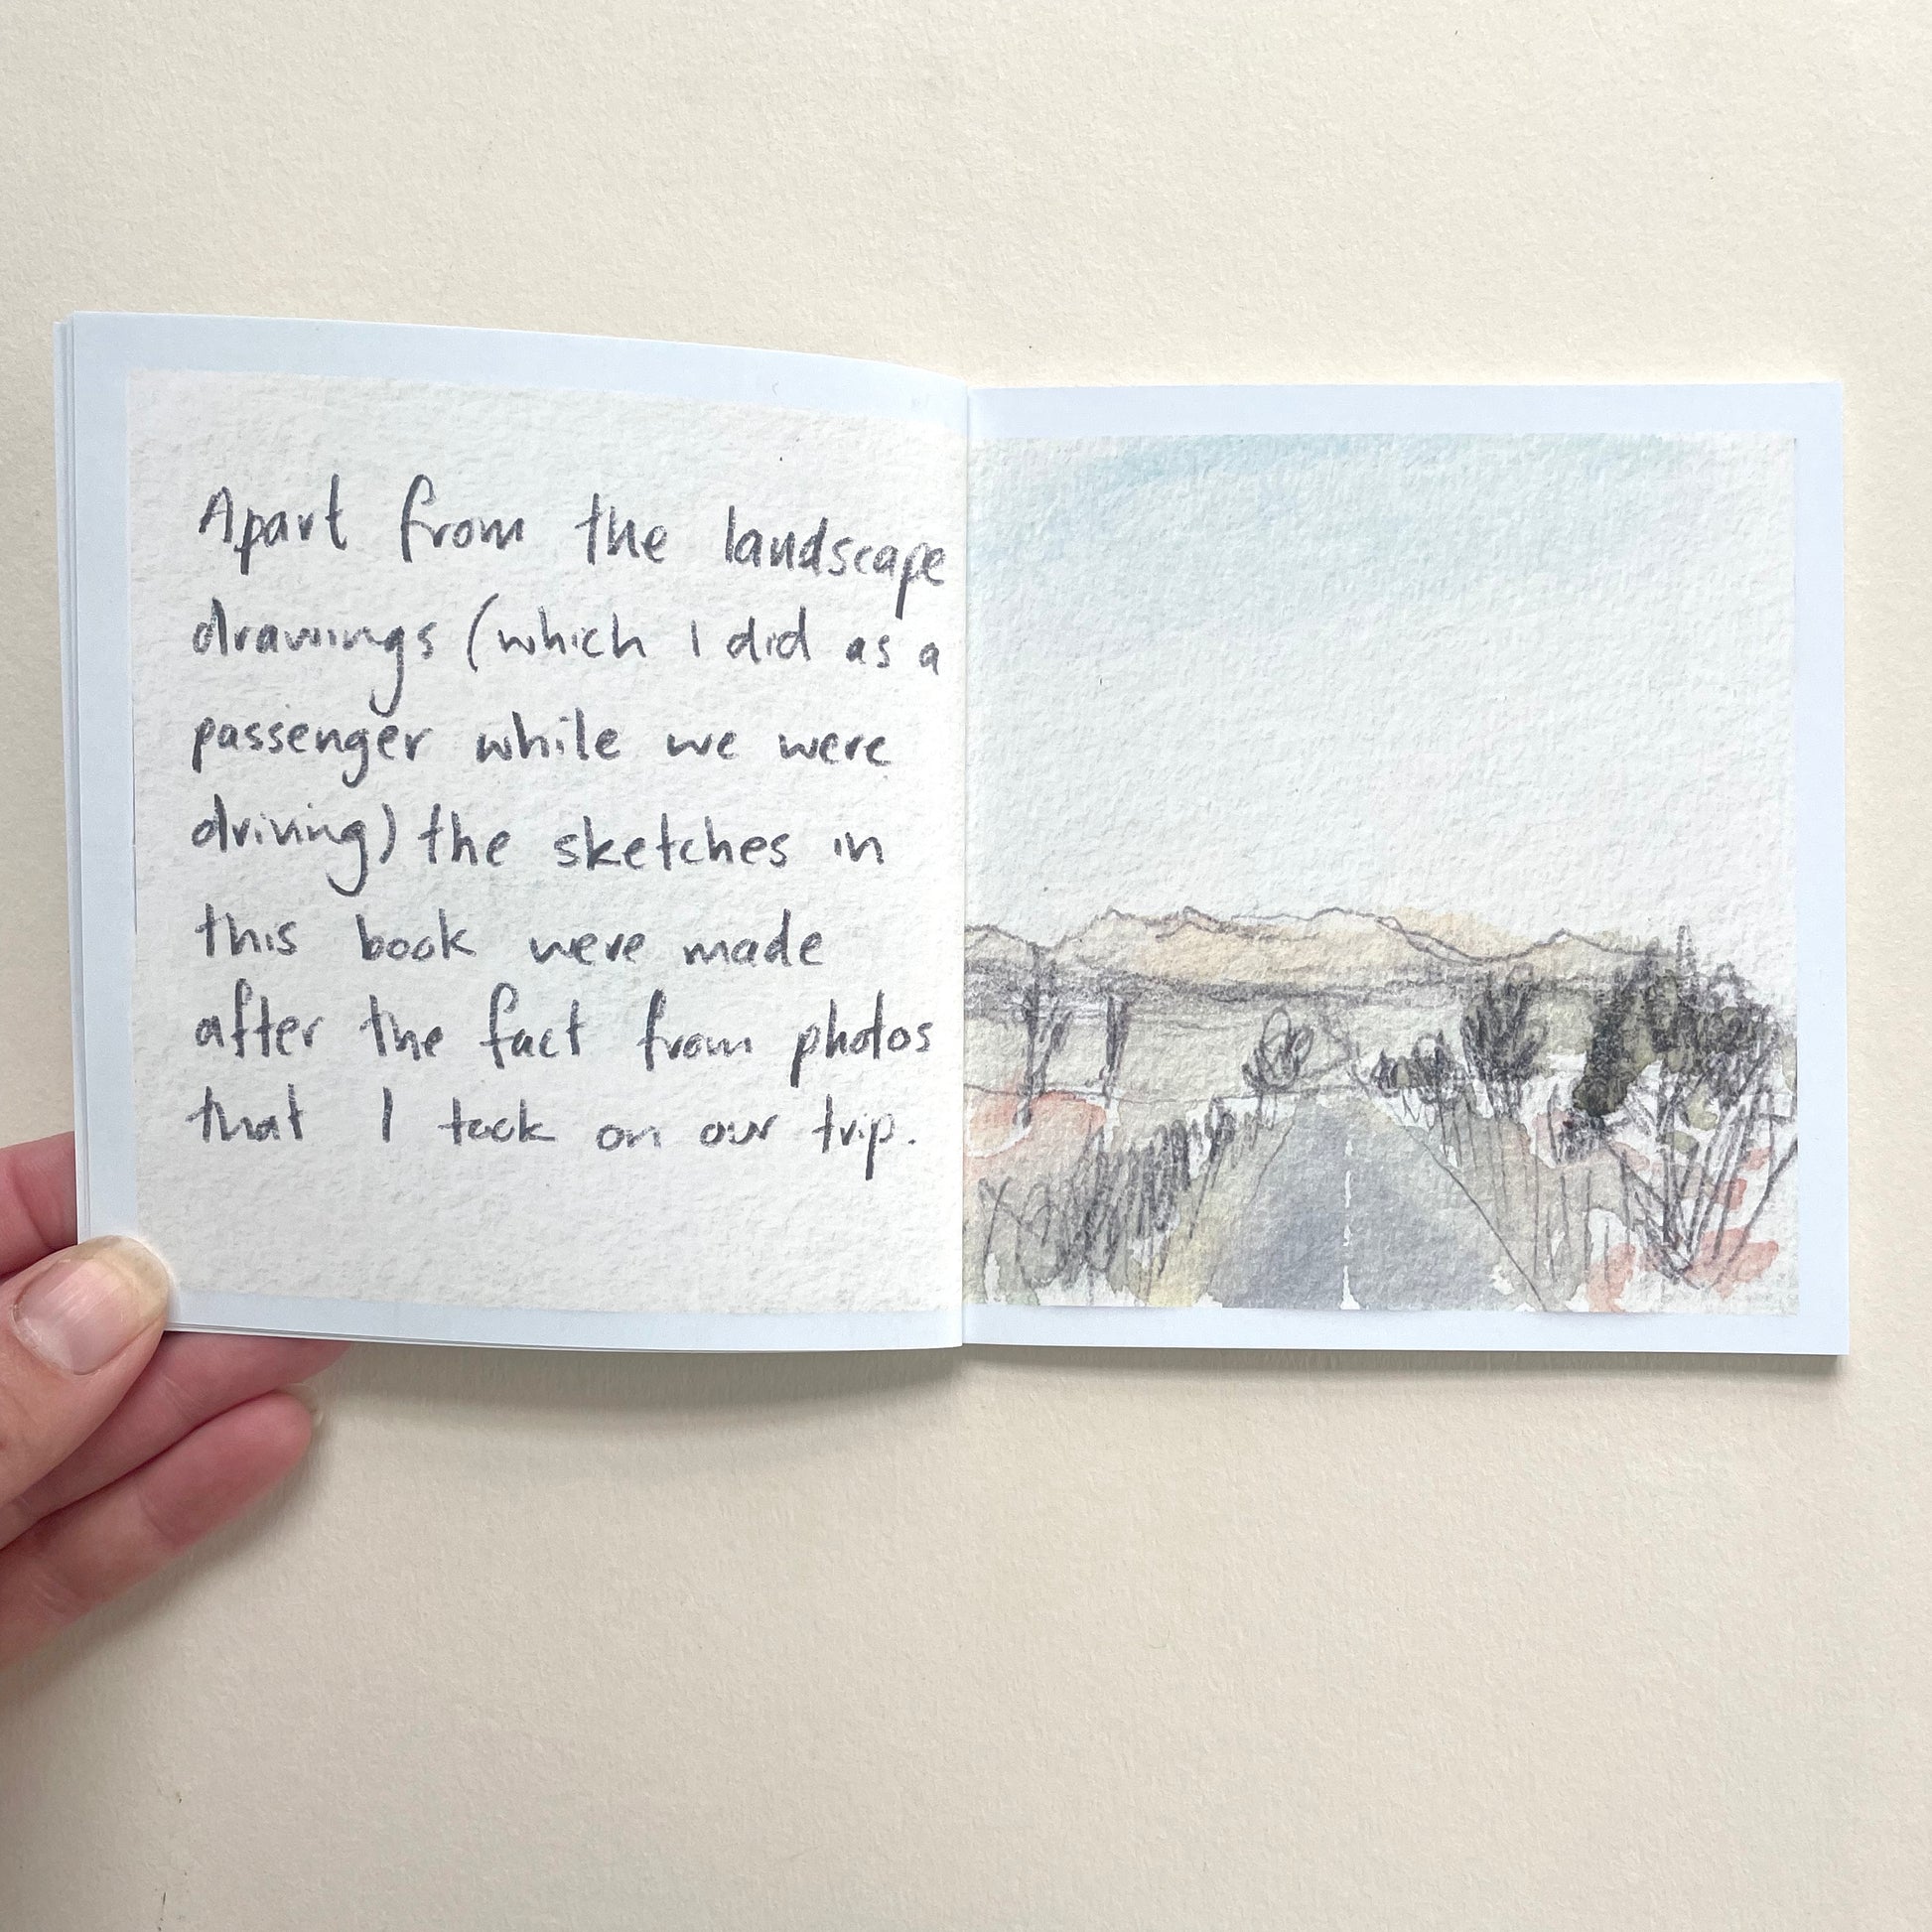 Apart from the landscape
drawings (which I did as a
passenger while we were
driving) the sketches in
this book were made
after the fact from photos
that I took on our trip.